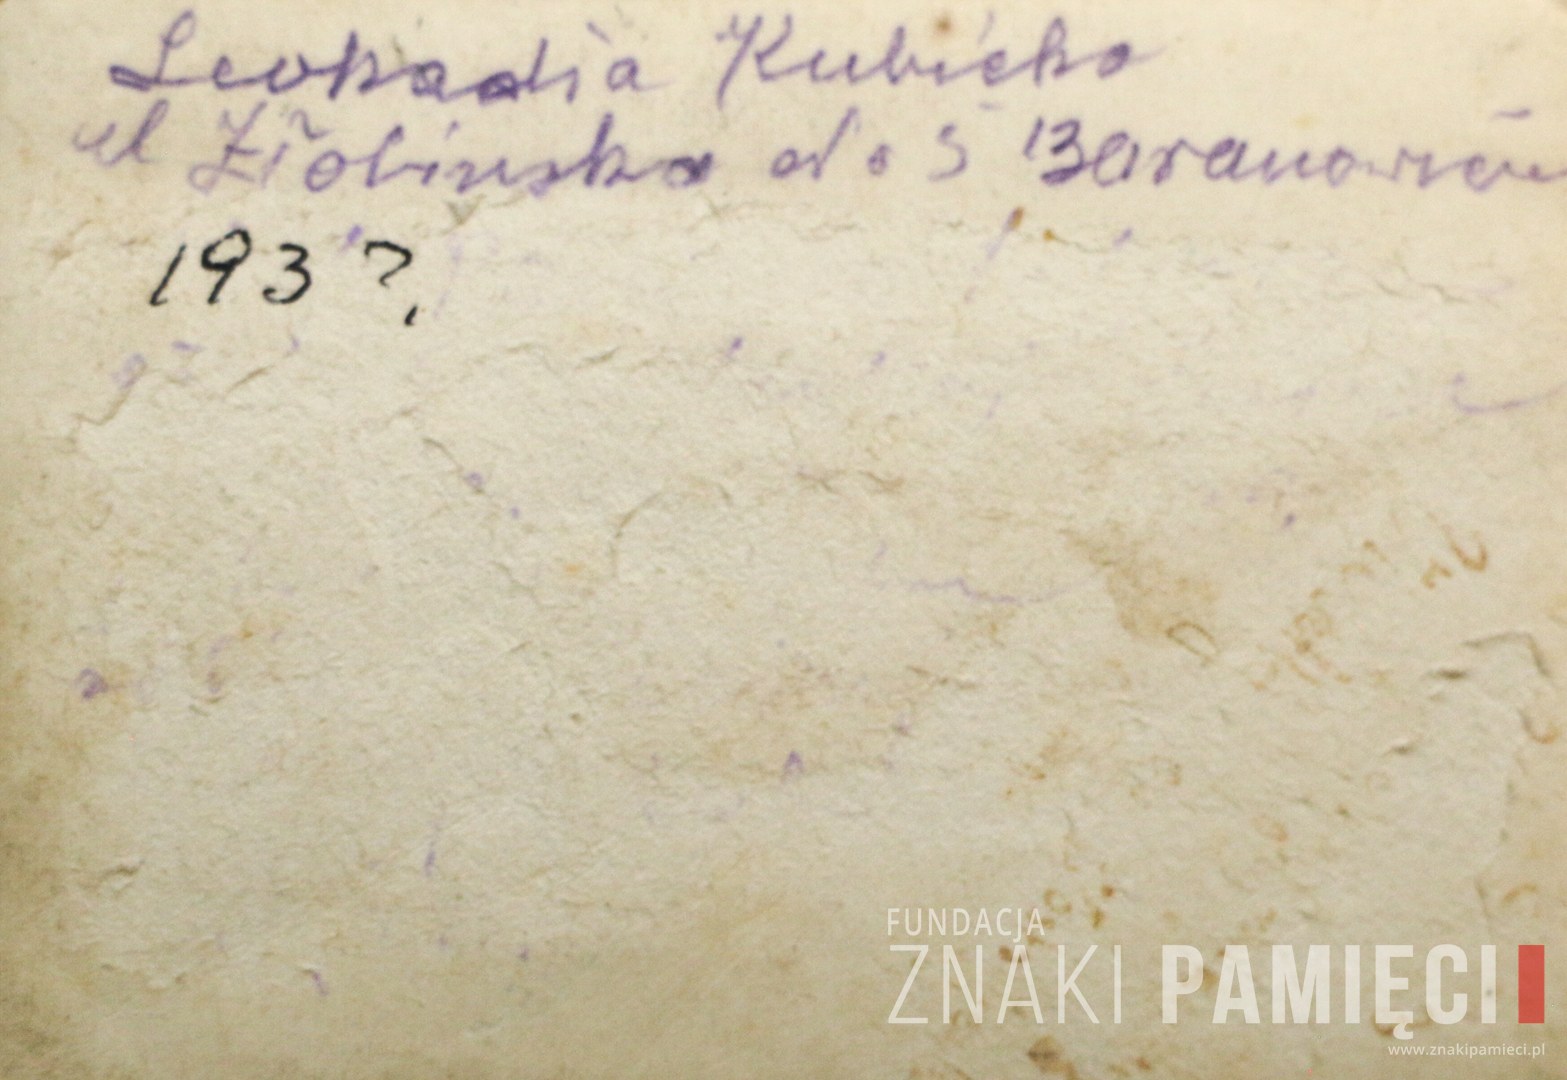 Leokadia Kubicka
ul Ziołińska do 5 Baranowicze
193?.
FUNDACJA
ZNAKI PAMIĘCI
www.znakipamieci.pl